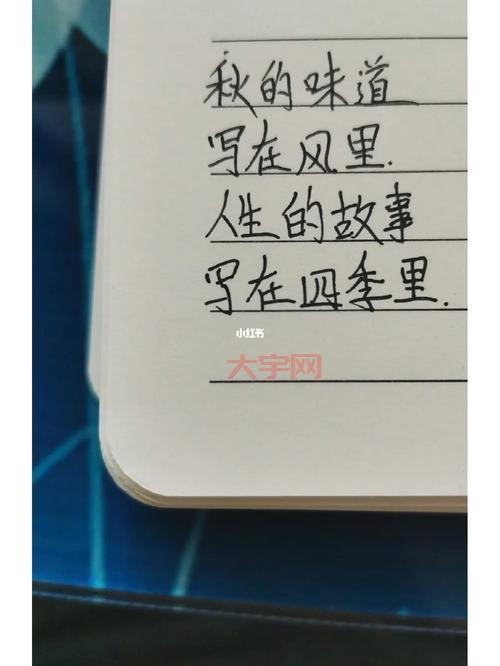 秋的味道
写在风里.
人生的故事
写在四季里.
小红书
大宇网